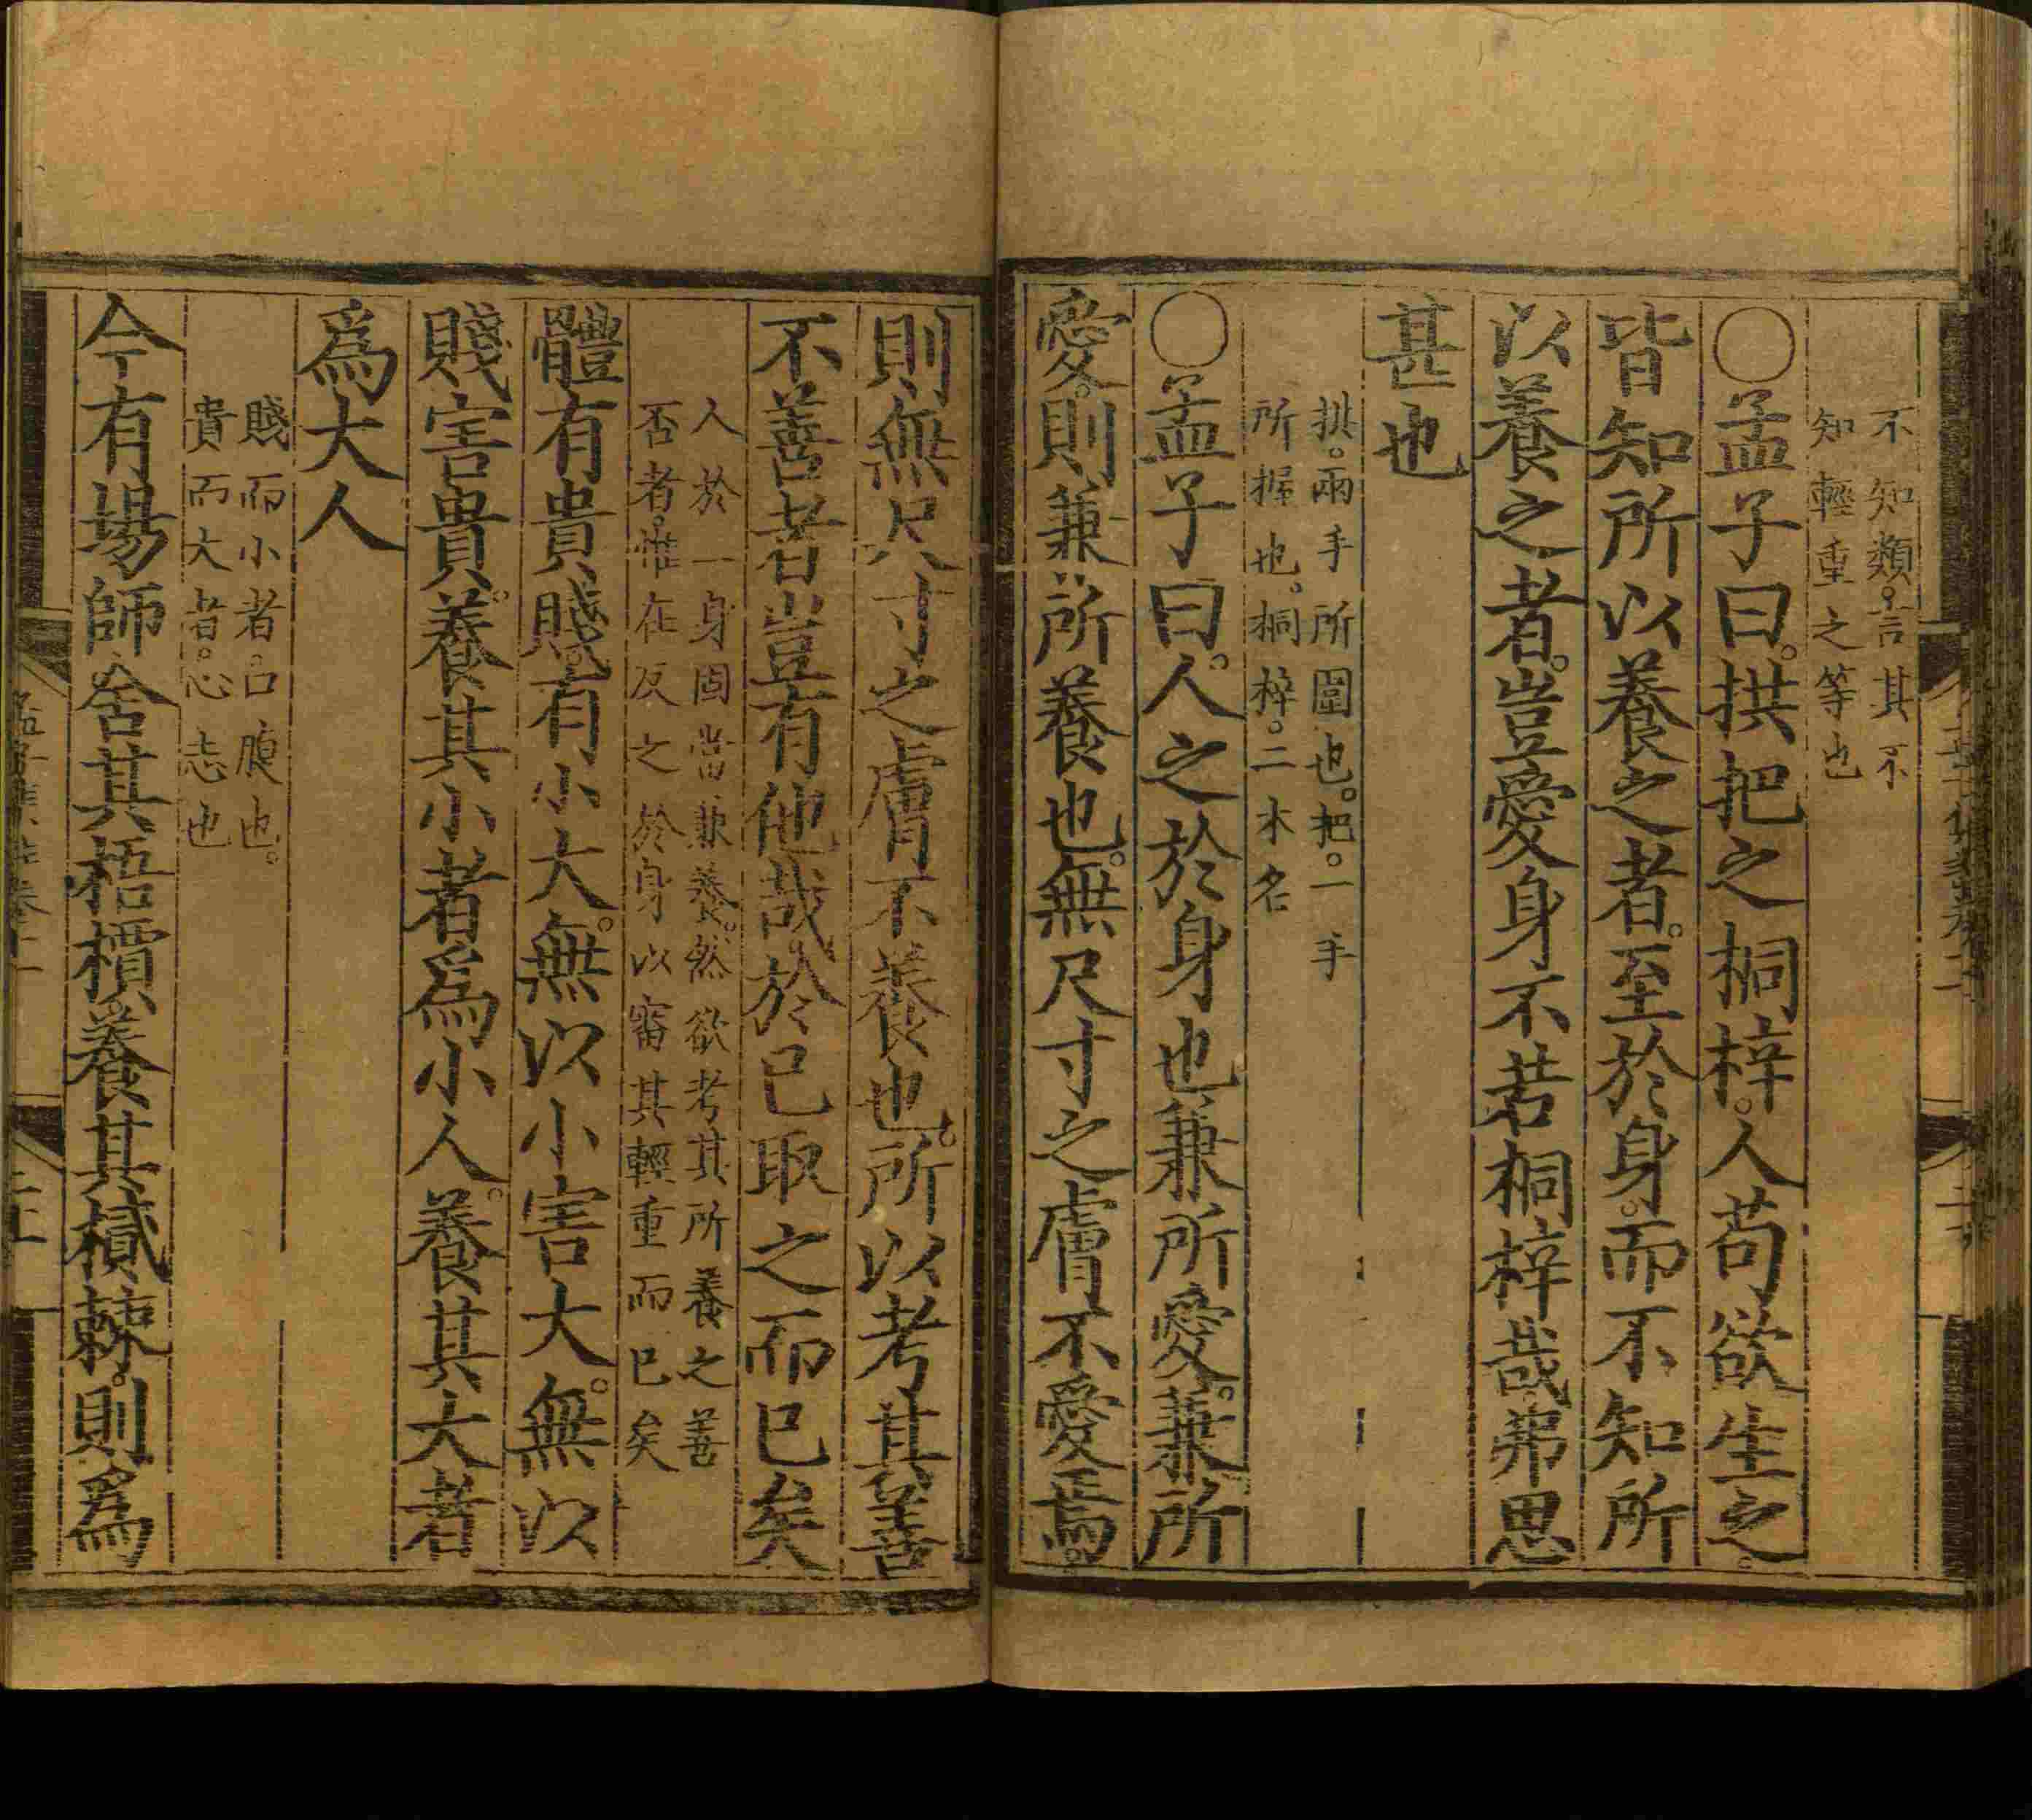 不知類。言其不
知輕重之等也
○孟子曰。拱把之桐梓。人苟欲生之。
皆知所以養之者。至於身。而不知所
以養之者。豈愛身不若桐梓哉。弗思
甚也
拱。兩手所圍也。把。一手
所握也。桐梓。二木名
○孟子曰。人之於身也。兼所愛。兼所
愛。則兼所養也。無尺寸之膚不愛焉。
則無尺寸之膚不養也。所以考其善
不善者。豈有他哉。於己取之而已矣
人於一身。固當兼養。然欲考其所養之善
否者。惟在反之於身。以審其輕重而已矣
體有貴賤。有小大。無以小害大。無以
賤害貴。養其小者爲小人。養其大者
爲大人
賤而小者。口腹也。
貴而大者。心志也
今有場師。舍其梧檟。養其樲棘。則爲